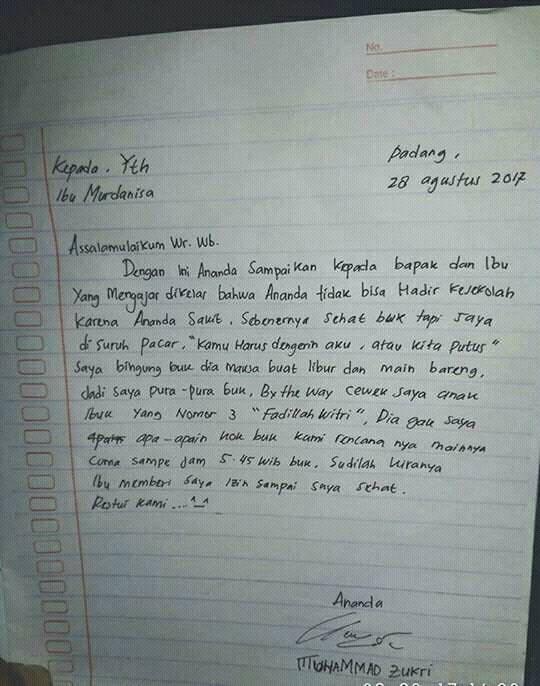 No.
Date :
Padang,
28 agustus 2017
Kepada. Yth
Ibu Murdanisa
Assalamulaikum Wr. Wb.
Dengan Ini Ananda Sampaikan Kepada bapak dan Ibu
Yang Mengajar dikelas bahwa Ananda tidak bisa Hadir Kesekolah
Karena Ananda Sakit. Sebenernya Sehat buk tapi saya
di suruh pacar, "Kamu Harus dengerin aku, atau Kita Putus"
Saya bingung buk dia maksa buat libur dan main bareng,
Jadi Saya pura-pura buk, By the Way Cewek Saya anak
Ibuk Yang Nomor 3 "Fadillah Witri", Dia gak Saya
apa-apain kok buk kami rencana nya mainnya
Cuma sampe Jam 5.45 Wib buk. Sudilah kiranya
Ibu memberi Saya Izin Sampai Saya Sehat.
Restui Kami...^_^
Ananda
MUHAMMAD Zukri